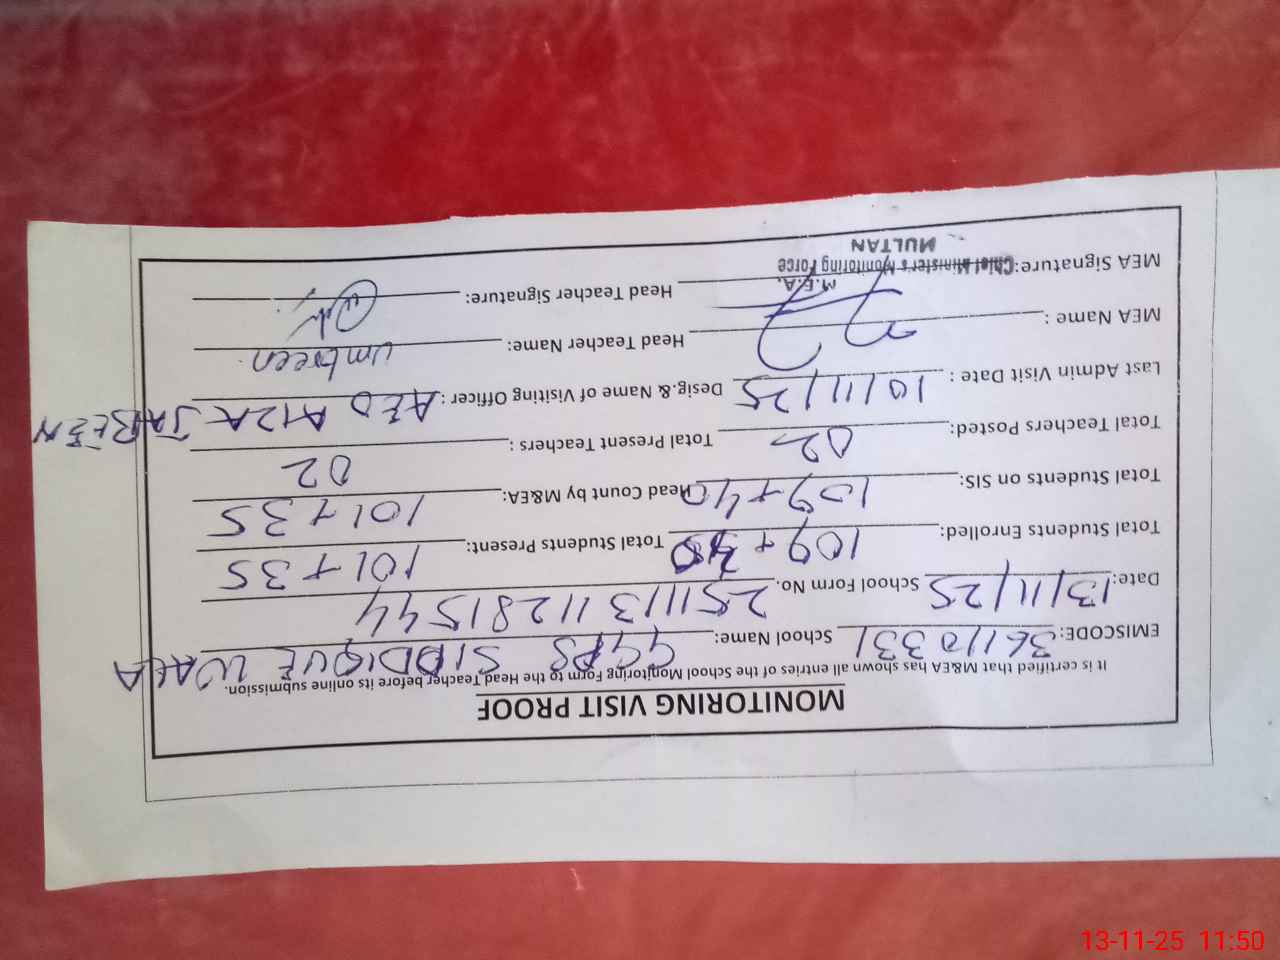 MONITORING VISIT PROOF
It is certified that M&EA has shown all entries of the School Monitoring Form to the Head Teacher before its online submission.
EMISCODE: 36110331 School Name: GGPS SIDDIQUE WALA
Date: 13/11/25 School Form No. 25111311281544
Total Students Enrolled: 109+40 Total Students Present: 101+35
Total Students on SIS: 109+40 Head Count by M&EA: 101+35
Total Teachers Posted: 02 Total Present Teachers : 02
Last Admin Visit Date : 10/11/25 Desig.& Name of Visiting Officer : AEO JABEEN
MEA Name : Head Teacher Name: Umbreen
MEA Signature: Head Teacher Signature:
M.E.A.
Chief Minister's Monitoring Force
MULTAN
13-11-25 11:50